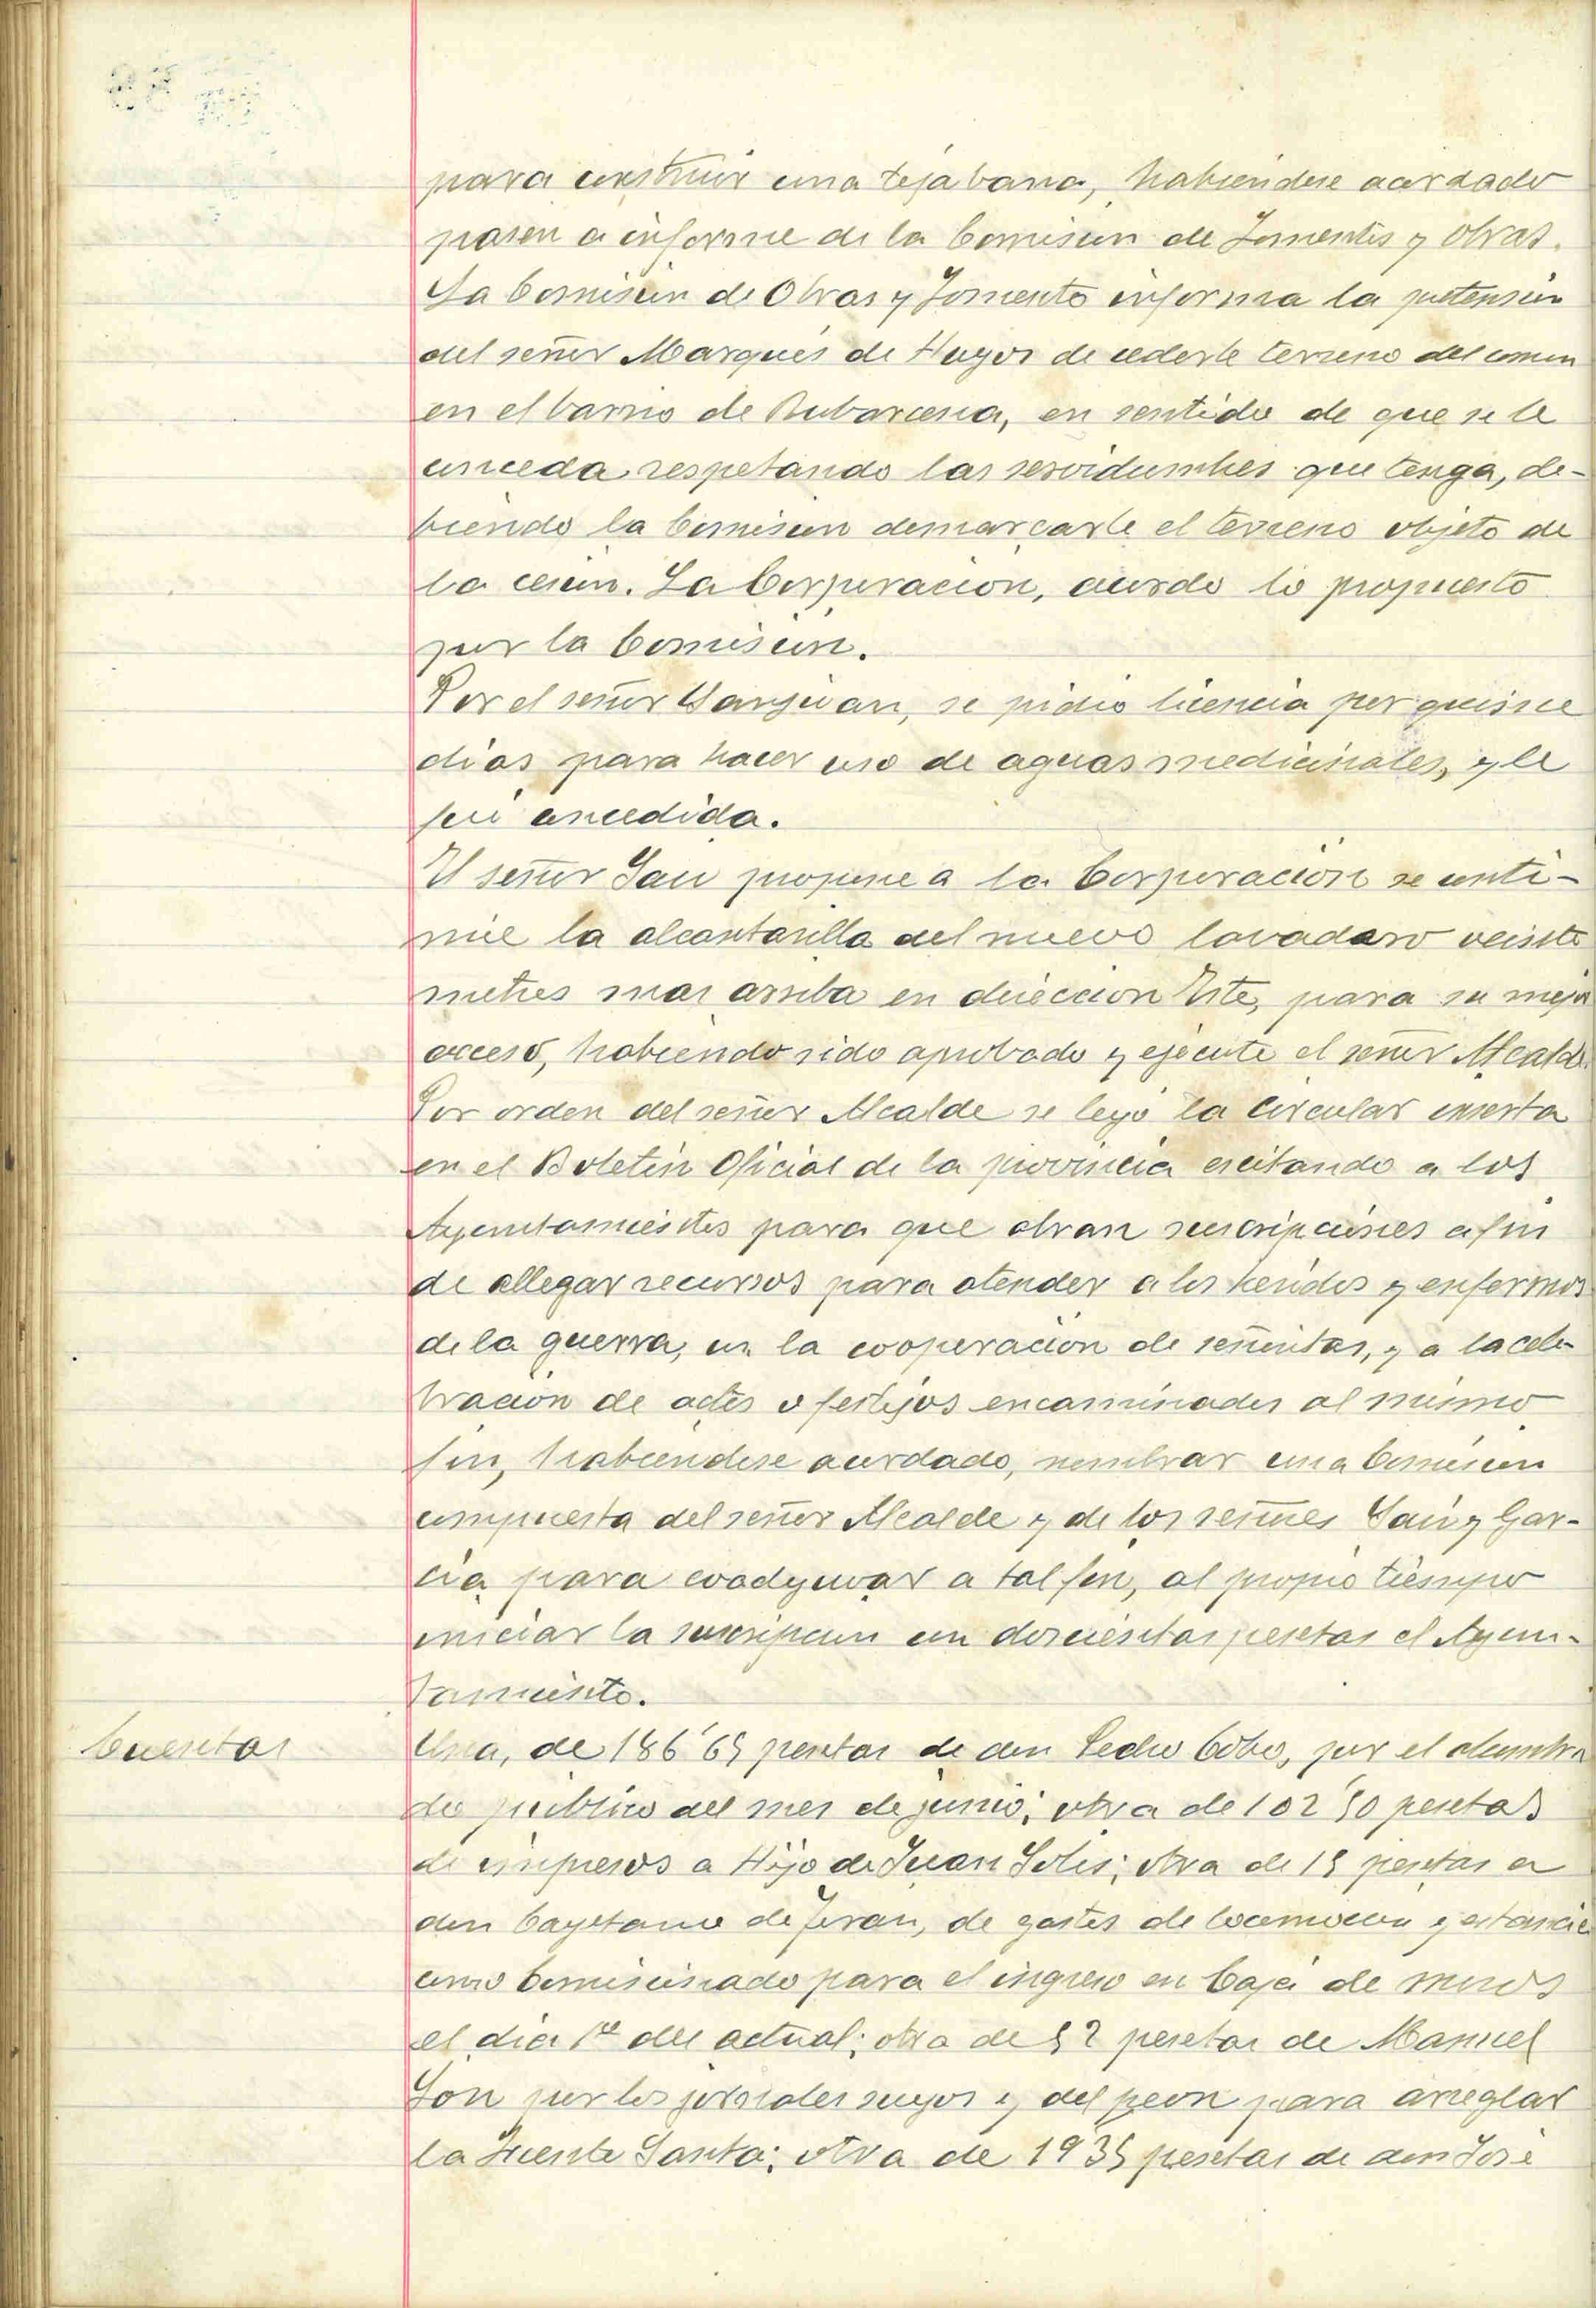 para construir una tejabana, habiendose acordado
pasen a informe de la Comision de Fomentos y Obras.
La Comisión de Obras y Fomento informa la pretensión
del señor Marqués de Hazas de cederle terreno del comun
en el barrio de Rubarcena, en sentido de que se le
conceda respetando las servidumbres que tenga, de-
biendo la Comision demarcarle el terreno objeto de
la cesión. La Corporación, acordo lo propuesto
por la Comisión.
Por el señor Sanjuan, se pidio licencia por quince
dias para hacer uso de aguas medicinales, y le
fue concedida.
El señor Sau propone a la Corporación se conti-
nue la alcantarilla del nuevo lavadero veinte
metros mas arriba en direccion Este, para su mejor
acceso, habiendo sido aprobado y ejecute el señor Alcalde.
Por orden del señor Alcalde se leyó la circular inserta
en el Boletín Oficial de la provincia excitando a los
Ayuntamientos para que abran suscripciones a fin
de allegar recursos para atender a los heridos y enfermos
de la guerra, con la cooperación de señoritas, y a la cele-
bración de actos o festejos encaminados al mismo
fin, habiendose acordado, nombrar una Comisión
compuesta del señor Alcalde y de los señores Sau y Gar-
cia para coadyuvar a tal fin, al propio tiempo
iniciar la suscripción con doscientas pesetas el Ayun-
tamiento.
Cuentas
Una, de 186'65 pesetas de don Pedro Cobo, por el alumbra
do publico del mes de junio; otra de 102'50 pesetas
de impresos a Hijo de Juan Solis; otra de 15 pesetas a
don Cayetano de Teran, de gastos de locomocion y estancia
como Comisionado para el ingreso en Caja de mozos
el dia 1º del actual; otra de 52 pesetas de Manuel
Gon por los jornales suyos y del peon para arreglar
la Fuente Santa; otra de 19'35 pesetas de don José